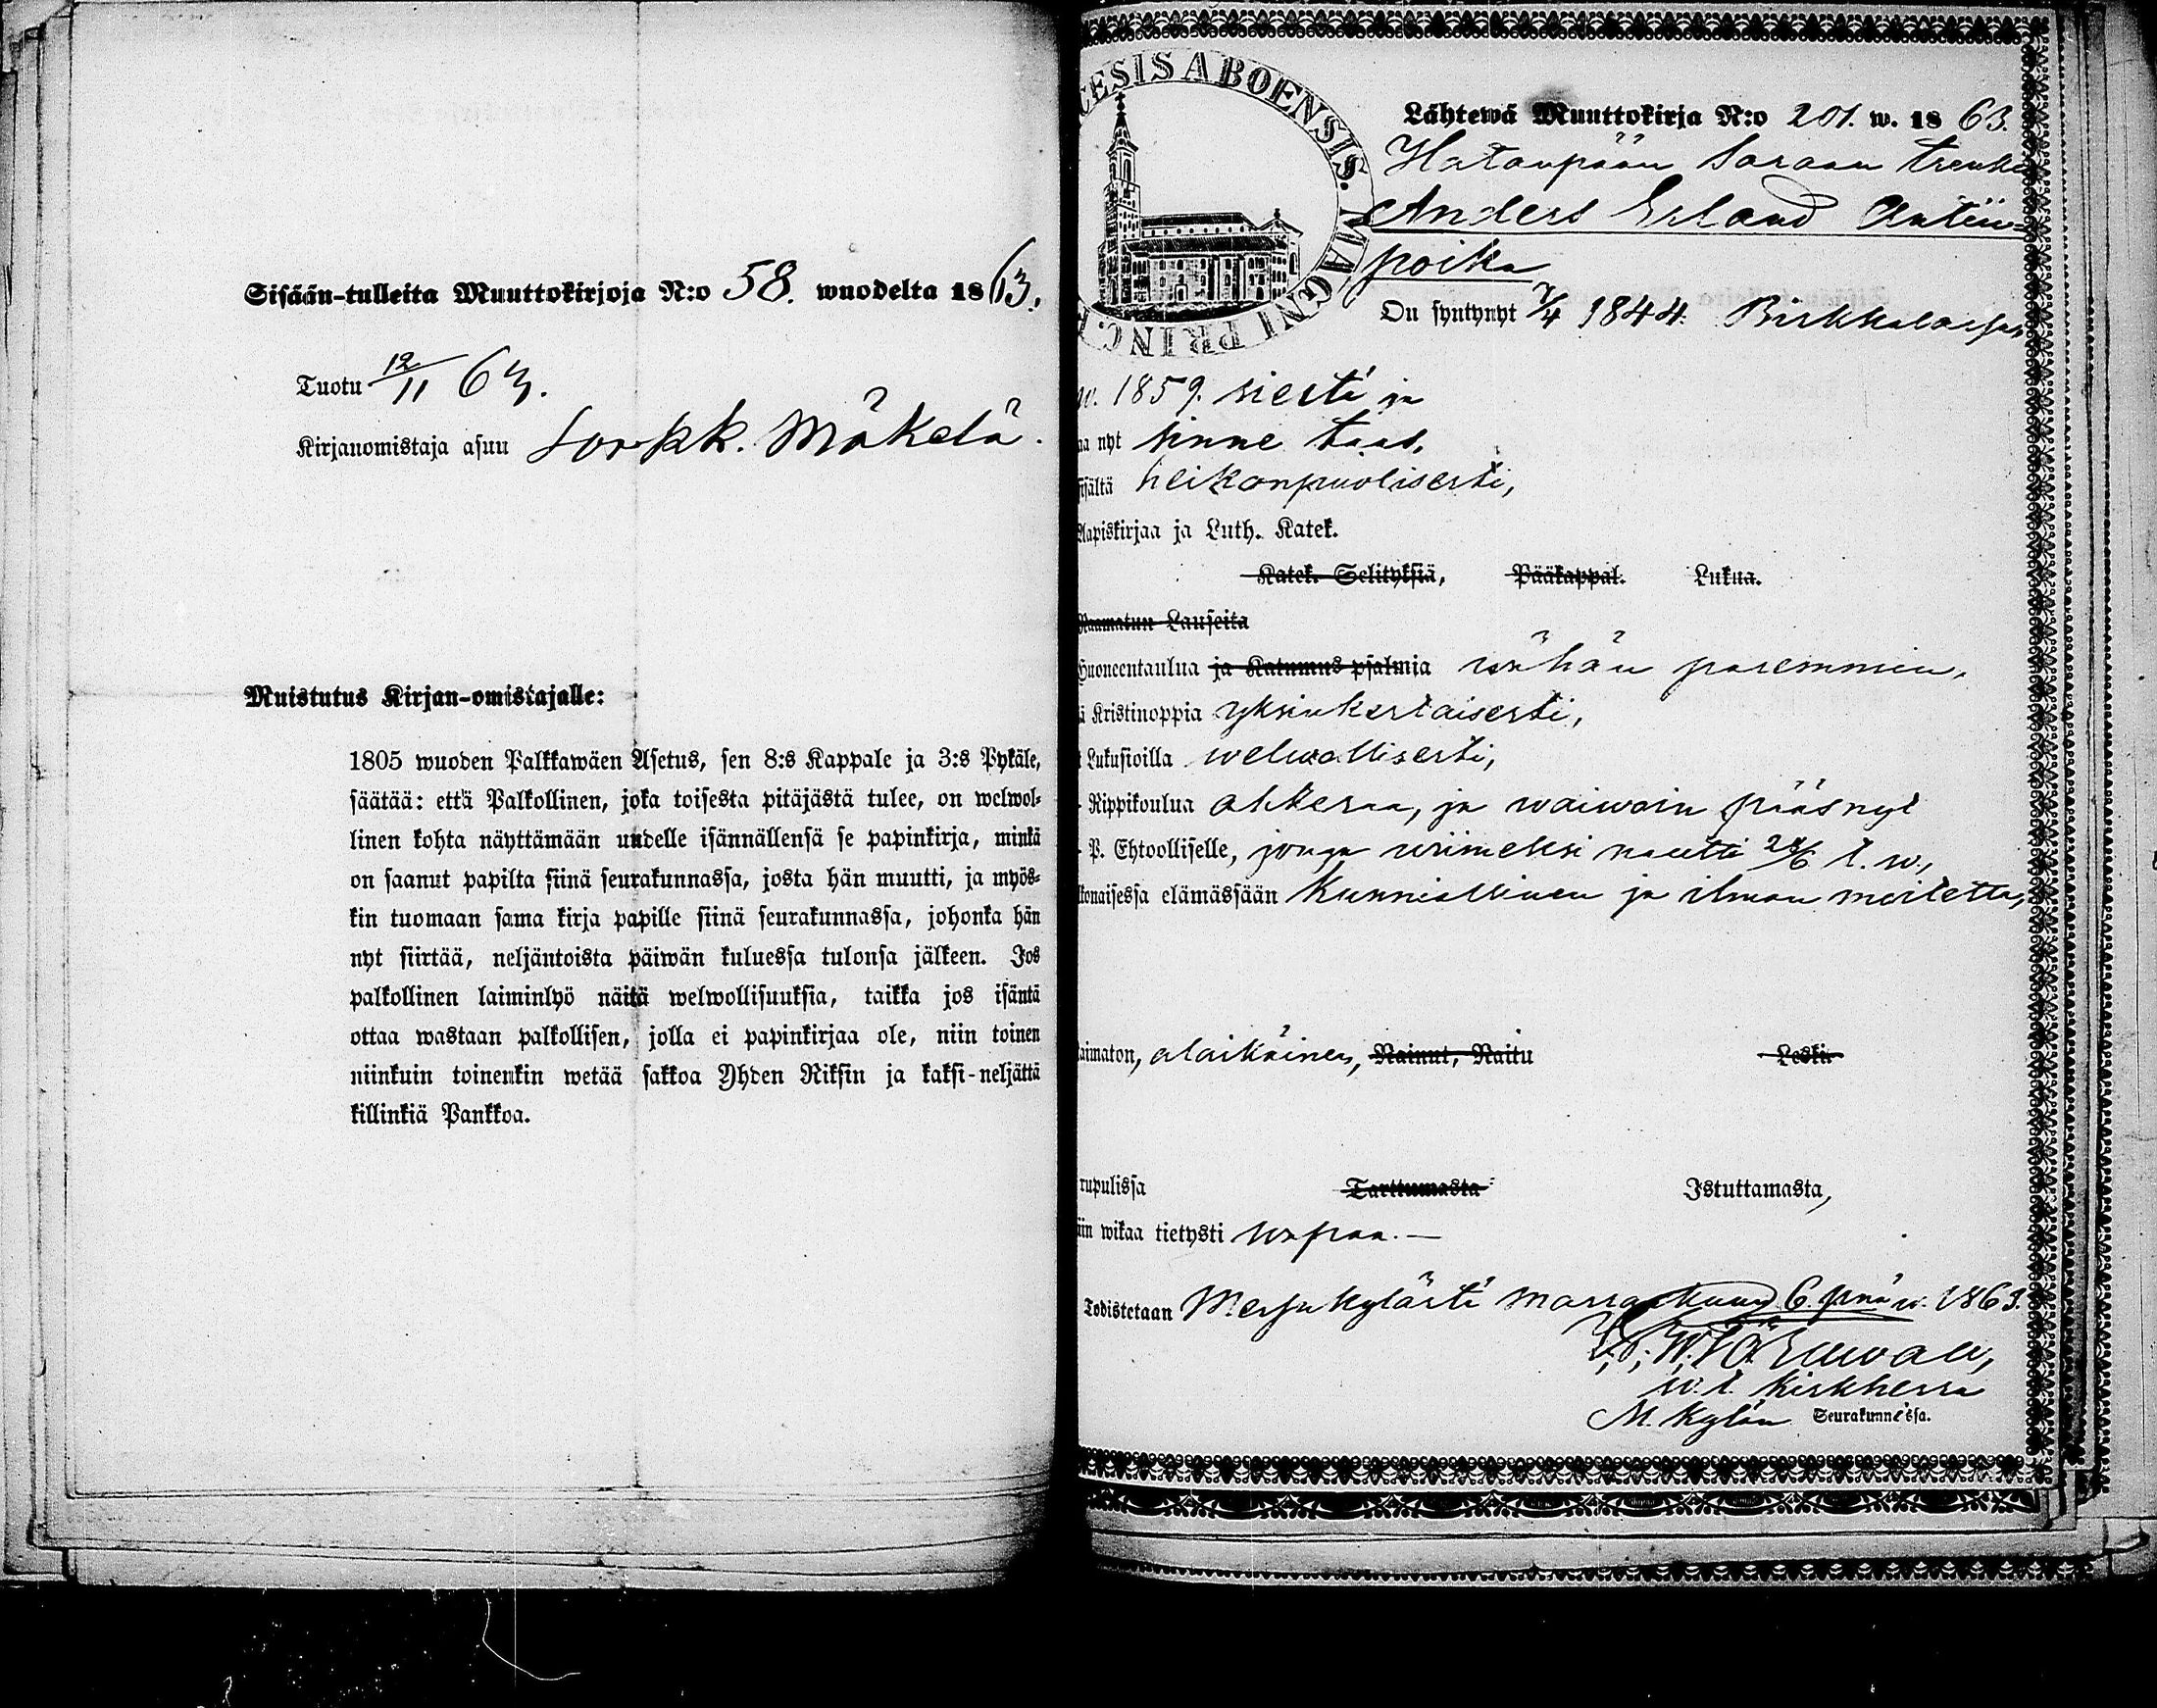 Sisään-tulleita Muuttokirjoja N:o 58. wuodelta 1863.
Tuotu 12/11 63.
Kirjanomistaja asuu Sorkk. Mäkelä.
Muistutus Kirjan-omistajalle:
1805 wuoden Palkkawäen Asetus, sen 8:s Kappale ja 3:s Pykäle,
säätää: että Palkollinen, joka toisesta pitäjästä tulee, on welwol-
linen kohta näyttämään uudelle isännällensä se papinkirja, minkä
on saanut papilta siinä seurakunnassa, josta hän muutti, ja myös-
kin tuomaan sama kirja papille siinä seurakunnassa, johonka hän
nyt siirtää, neljäntoista päiwän kuluessa tulonsa jälkeen. Jos
palkollinen laiminlyö näitä welwollisuuksia, taikka jos isäntä
ottaa wastaan palkollisen, jolla ei papinkirjaa ole, niin toinen
niinkuin toinenkin wetää sakkoa Yhden Riksin ja kaksi-neljättä
killinkiä Pankkoa.
CESIS ABOENSIS. MAGNI PRINC. F
Lähtewä Muuttokirja N:o 201. w. 1863.
Hatanpään Saraan trenki
Anders Erland Antin-
poika
On syntynyt 7/4 1844. Birkkalassa,
w. 1859. sieltä ja
aa nyt sinne taas,
sisältä heikonpuolisesti,
Aapiskirjaa ja Luth. Katek.
Katek. Selityksiä, Pääkappal. Lukua.
Raamatun Lauseita
Huoneentaulua ja Katumus-psalmia wähän paremmin,
ä Kristinoppia yksinkertaisesti,
t Lukusioilla welwollisesti,
Rippikoulua ahkeraa, ja waiwoin pääsnyt
P. Ehtoolliselle, jonga wiimeksi nautti 24/6 t. w.,
lkonaisessa elämässään kunniallinen ja ilman moitetta,
aimaton, alaikäinen, Nainut, Naitu Leski
rupulissa Tarttumasta Istuttamasta,
iin wikaa tietysti wapaa. —
Todistetaan Messukylästä marraskuun 6. pnä w. 1863.
w. t. Kirkkherra
M. Kylän Seurakunnassa.